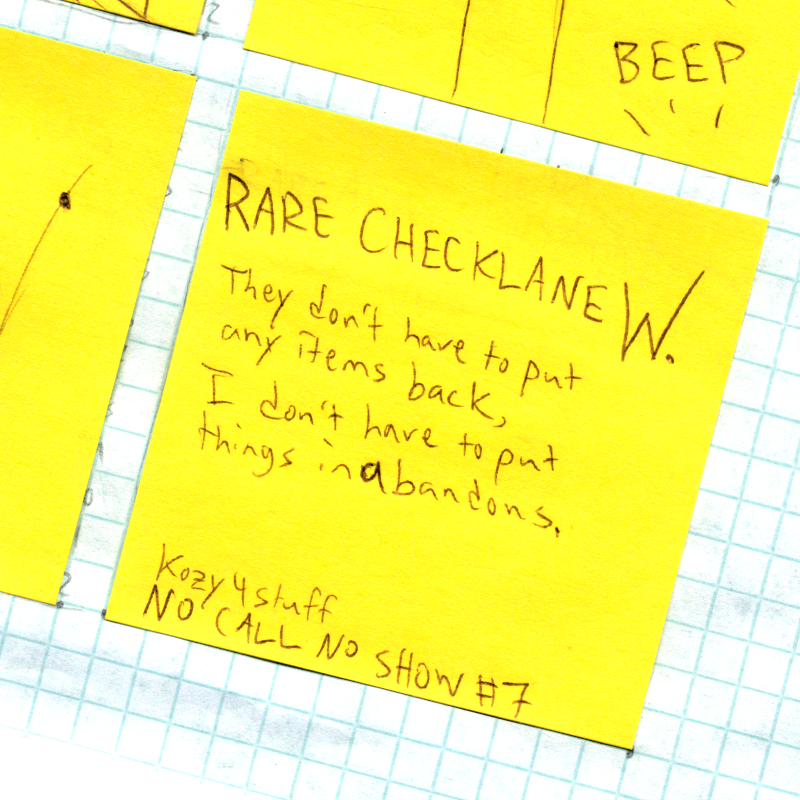 BEEP
RARE CHECKLANE W.
They don't have to put
any items back,
I don't have to put
things in abandons.
Kozy 4 stuff
NO CALL NO SHOW #7